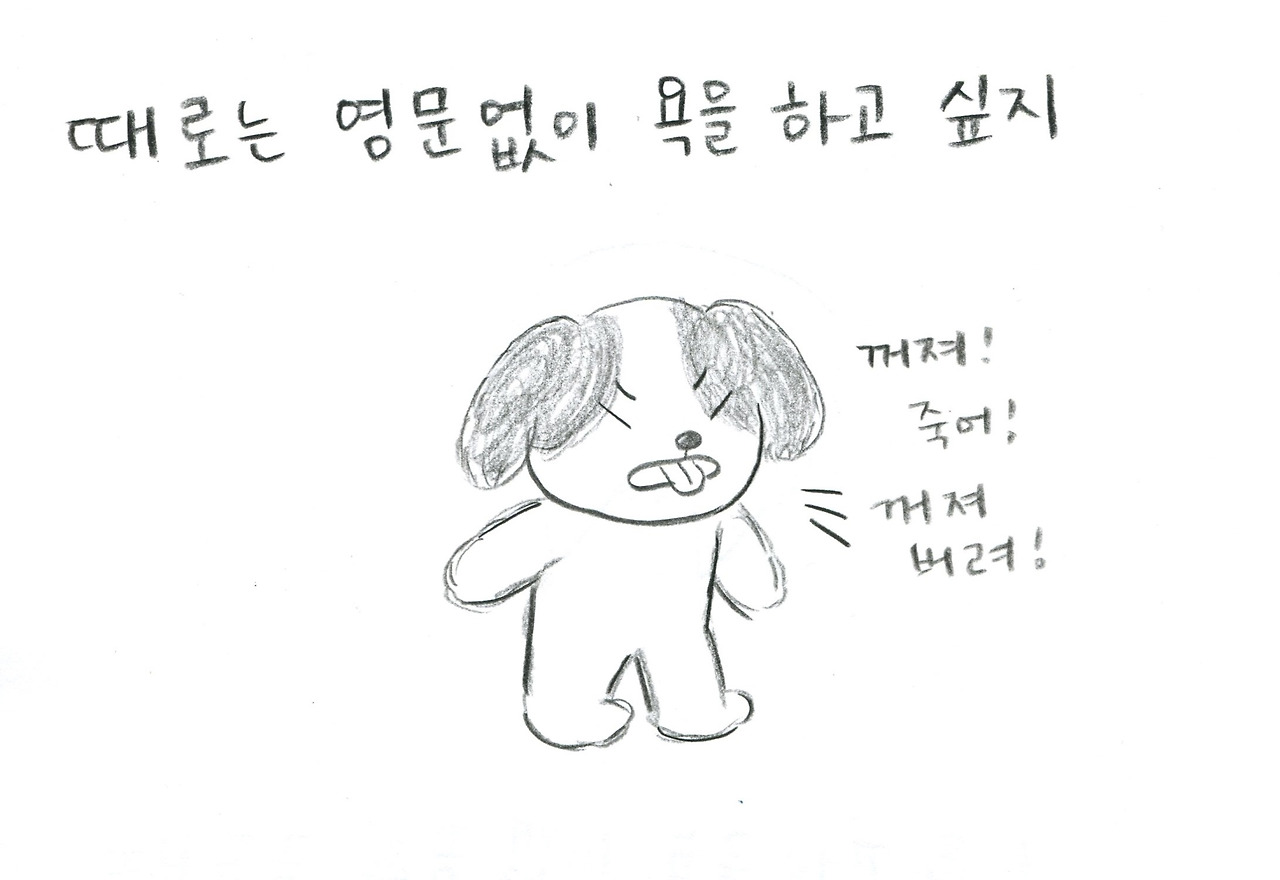 때로는 영문없이 욕을 하고 싶지
꺼져!
죽어!
꺼져
버려!